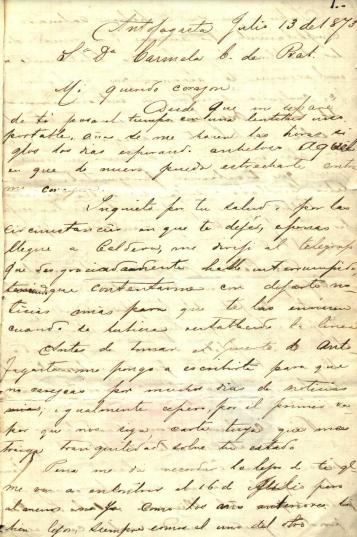 1.-
Antofagasta Julio 13 de 1873
Sª Dª Carmela C. de Prat.
Mi querido corazon
Desde que me separé
de ti pasa el tiempo con una lentitud inso
portable, años de me hacen las horas, si
glos los dias esperando anheloso aquel
en que de nuevo pueda estrecharte contra
mi corazon.
Inquieto por tu salud, por las
circunstancias en que te dejé, apenas
llegué a Caldera, me dirijí al telégrafo
que desgraciadamente hallé interrumpido
que contentarme con dejarte no
ticias mias para que te las envien
cuando la linea
Antes de tomar el puerto de Anto
fagasta me pongo a escribirte para que
no carezcas por muchos dias de noticias
mias, igualmente espero, por el primer va
por que nos siga carta tuya que me
traiga tranquilidad sobre tu estado
Pena me dá recordar lo lejos de ti q'
me va a encontrar el 16 de Julio pero
al menos no ya como los años anteriores tan
bien lejos, siempre somos el uno del otro